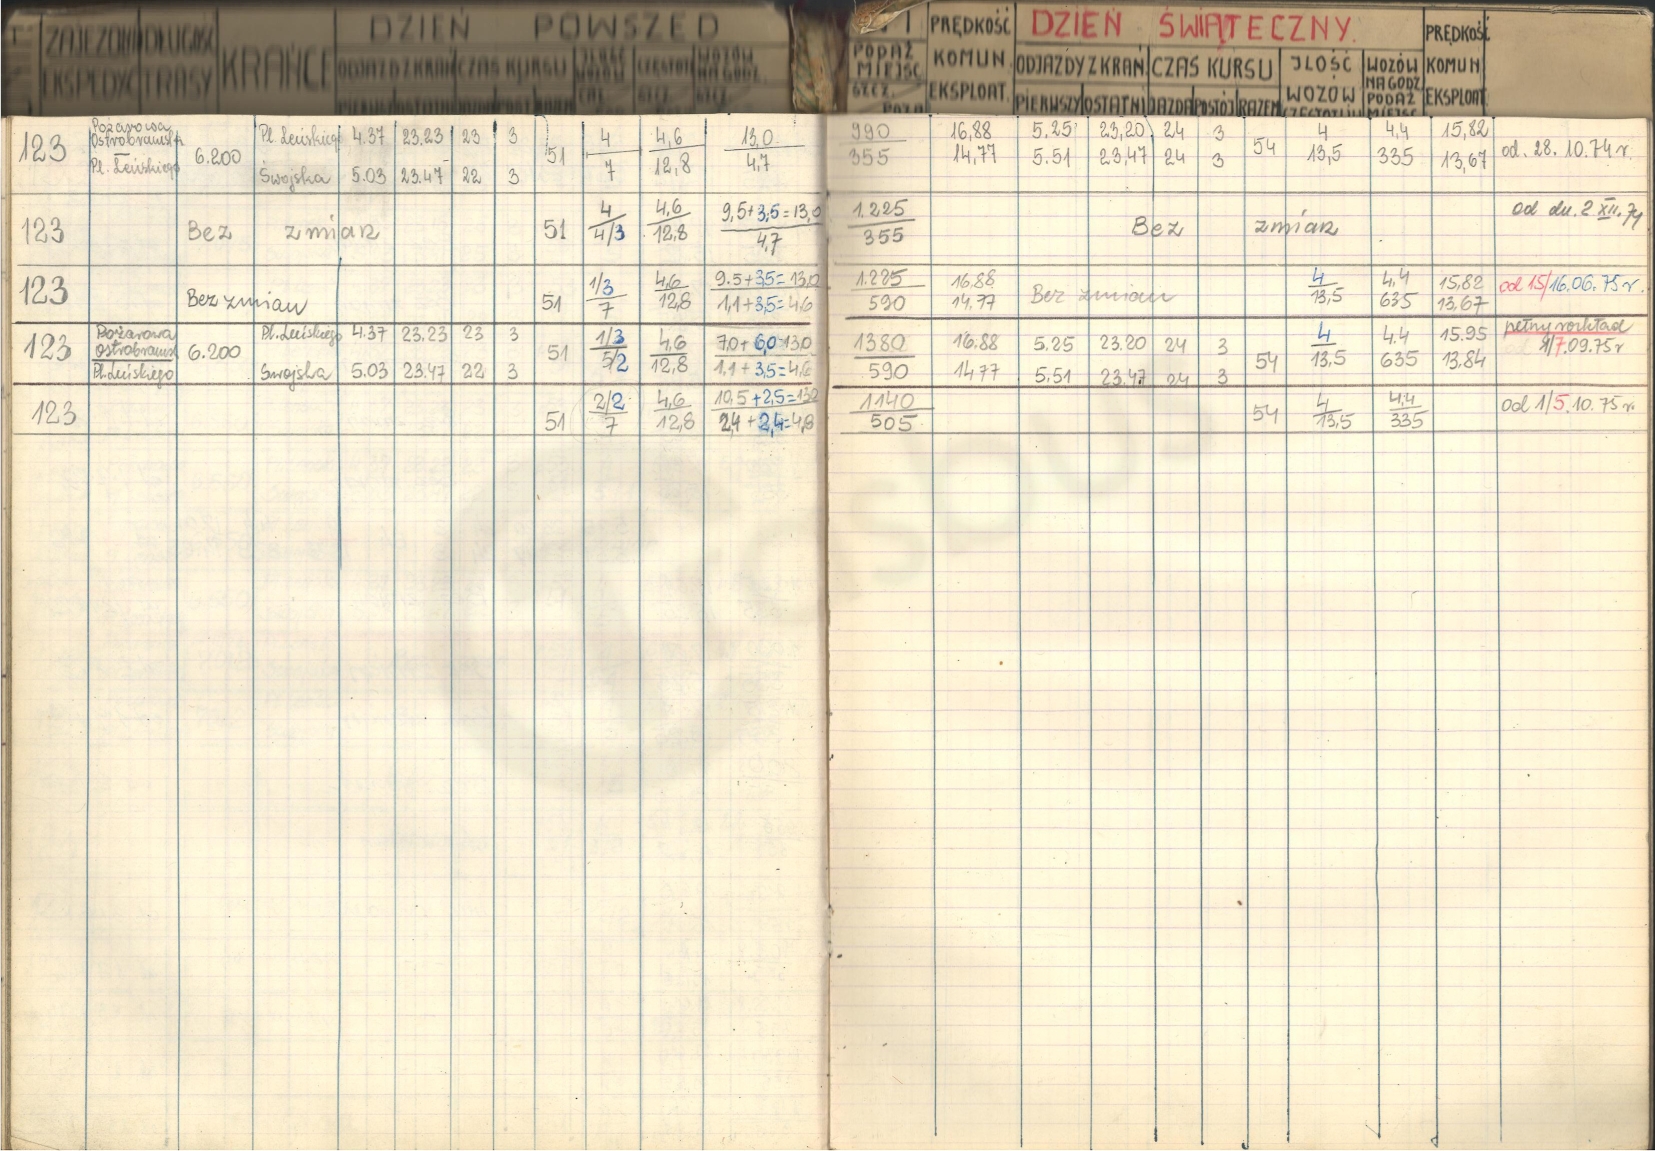 ZAJEZDNIA DŁUGOŚĆ KRAŃCE DZIEŃ POWSZED
EKSPEDYC TRASY ODJAZD Z KRAŃ CZAS KURSU ILOŚĆ WOZÓW CZĘSTOT WOZÓW NA GODZ.
PIERWSZ OSTATNI JAZDA POST RAZEM SZCZ.
PODAŻ MIEJSC SZCZ. PRĘDKOŚĆ KOMUN. EKSPLOAT. DZIEŃ ŚWIĄTECZNY. PRĘDKOŚĆ KOMUN EKSPLOAT.
ODJAZDY Z KRAŃ CZAS KURSU JLOŚĆ WOZÓW WOZÓW NA GODZ PODAŻ MIEJSC
PIERWSZY OSTATNI JAZDA POSTÓJ RAZEM
123 Pożarowa Ostrobramska Pl. Leńskiego 6.200 Pl. Leńskiego 4.37 23.23 23 3 51 4 4,6 13,0 990 16,88 5.25 23,20 24 3 54 4 4,4 15,82 od. 28. 10. 74 r.
Świojska 5.03 23.47 22 3 7 12,8 4,7 355 14,77 5.51 23,47 24 3 13,5 335 13,67
123 Bez zmian 51 4 4,6 9,5+3,5=13,0 1.225 Bez zmian od dn. 2 XII. 74
4/3 12,8 4,7 355
123 Bez zmian 51 1/3 4,6 9.5+3,5=13,0 1.225 16,88 Bez zmian 4 4,4 15,82 od 15/16.06.75 r.
7 12,8 1,1+3,5=4,6 590 14.77 13,5 635 13,67
123 Pożarowa Ostrobramsk Pl. Leńskiego 6.200 Pl. Leńskiego 4.37 23,23 23 3 51 1/3 4,6 7,0+6,0=13,0 1380 16.88 5.25 23.20 24 3 54 4 4.4 15.95 pełny rozkład
Swojska 5.03 23.47 22 3 5/2 12,8 1,1+3,5=4,6 590 1477 5.51 23.47 24 3 13.5 635 13,84 /7.09.75 r
123 51 2/2 4,6 10,5+2,5=13,0 1140 54 4 4,4 od 1/5.10.75 r.
7 12,8 2,4+2,4=4,8 505 13,5 335